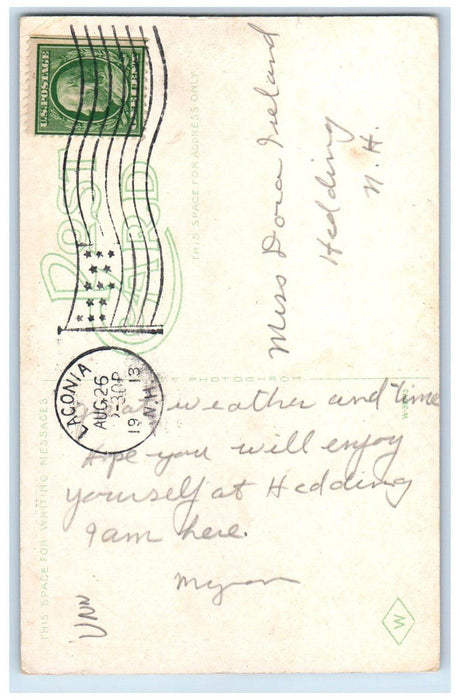 U.S. POSTAGE
POST
CARD
THIS SPACE FOR ADDRESS ONLY.
Miss Dora Ireland
Hedding
N. H.
LACONIA
AUG 26
-30P
19 13
N.H.
PHOTOCHROM
THIS SPACE FOR WRITING MESSAGES
weather and time
Hope you will enjoy
yourself at Hedding
I am here.
Myron
W